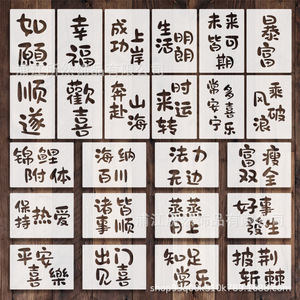 如願
幸福
成功
上岸
生活
明朗
未来
皆可期
暴富
顺遂
歡喜
奔赴
山海
时运
来转
多喜乐
常安宁
乘风
破浪
锦鲤
附体
海纳
百川
法力
无边
富瘦
双全
保持热爱
诸事
皆顺
蒸蒸
日上
好事
發生
平安
喜樂
出门
见喜
知足
常乐
披荆
斩棘